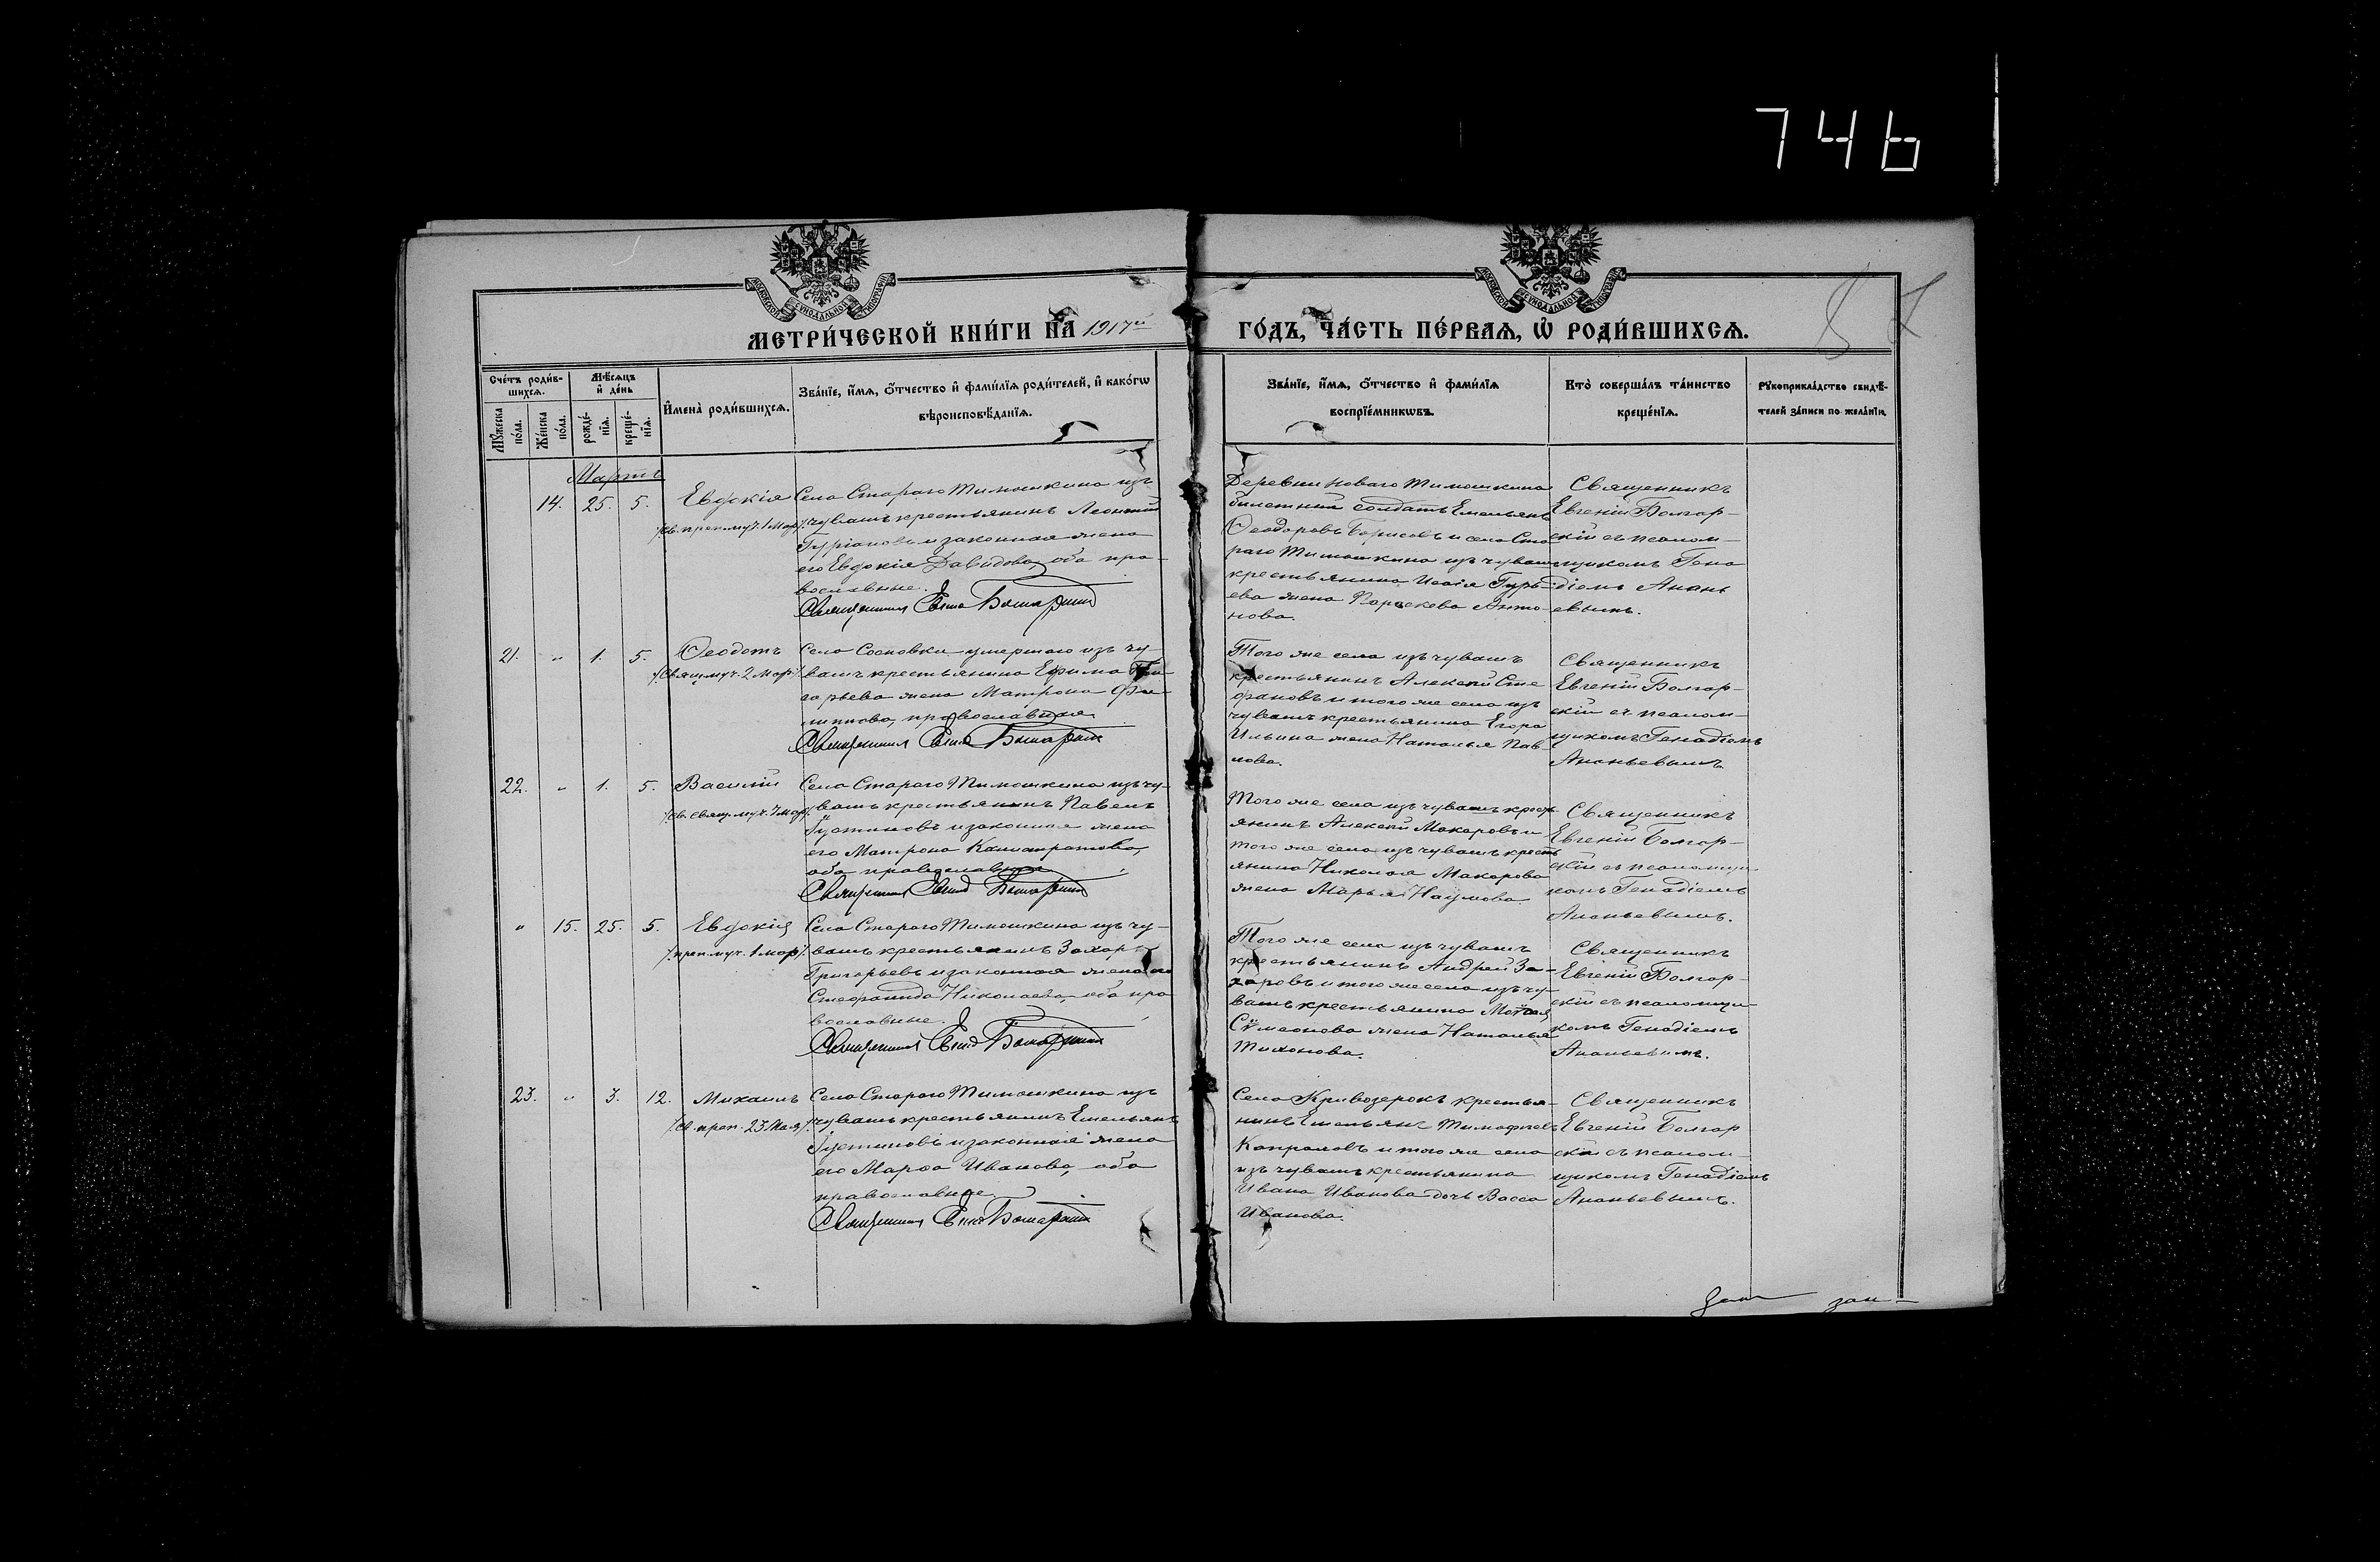 746
МЕТРИ́ЧЕСКОЙ КНИ́ГИ НА 1917й
ГО́ДЪ, ЧА́СТЬ ПЕ́РВАЯ, Ѡ РОДИ́ВШИХСЯ.
Сче́тъ роди́в-
шихся.
Мѣ́сяцъ
и҆ де́нь
Мꙋ́жеска
по́ла.
Же́нска
по́ла.
рожде́-
нїѧ.
креще́-
нїѧ.
И҆мена̀ роди́вшихся.
Зва́нїе, и҆́мя, о҆́тчество и҆ фами́лїя роди́телей, и҆ како́гѡ
вѣроисповѣ́данїя.
Зва́нїе, и҆́мя, о҆́тчество и҆ фами́лїя
воспрїе́мникѡвъ.
Кто̀ соверша́лъ та́инство
креще́нїя.
Рꙋкоприкла́дство свидѣ́-
телей за́писи по жела́нїю.
Мартъ
14. 25. 5. Евдокія
/св. преп. муч. 1 мар/.
Села Стараго Тимошкина изъ
чувашъ крестьянинъ Леонтій
Гуріановъ и законная жена
его Евдокія Давидова, оба пра-
вославные.
Священникъ
Деревни Новаго Тимошкина
билетный солдатъ Емельянъ
Ѳеодоровъ Борисовъ и села Ста
раго Тимошкина изъ чувашъ
крестьянина Исаія Гурь-
ева жена Параскева Анто-
нова.
Священникъ
Евгеній Болгар-
скій съ псалом-
щикомъ Гена
діемъ Анань
евымъ.
21. " 1. 5. Ѳеодотъ
/Свящмуч. 2 Мар/
Села Сосновки умершаго изъ чу-
вашъ крестьянина Ефима Гри-
горьева жена Матрона Фи-
липпова, православная.
Священникъ
Того же села изъ чувашъ
крестьянинъ Алексѣй Сте
фановъ и того же села изъ
чувашъ крестьянина Егора
Ильина жена Наталья Пав
лова.
Священникъ
Евгеній Болгар-
скій съ псалом-
щикомъ Генадіемъ
Ананьевымъ
22. " 1. 5. Василій
/св. свящ. муч. 7 мар/.
Села Стараго Тимошкина изъ чу-
вашъ крестьянинъ Павелъ
Іустиновъ и законная жена
его Матрона Калистратова,
оба православные
Священникъ
Того же села изъ чувашъ крест-
янинъ Алексѣй Макаровъ и
того же села изъ чувашъ кресть
янина Николая Макарова
жена Марья Наумова
Священникъ
Евгеній Болгар-
скій съ псаломщи-
комъ Генадіемъ
Ананьевымъ.
" 15. 25. 5. Евдокія
/преп. муч. 1 мар/.
Села Стараго Тимошкина изъ чу-
вашъ крестьянинъ Захаръ
Григорьевъ и законная жена его
Стефанида Николаева, оба пра
вославные.
Священникъ
Того же села изъ чувашъ
крестьянинъ Андрей За-
харовъ и того же села изъ чу-
вашъ крестьянина Моѵсея
Сѵмеонова жена Наталья
Тихонова.
Священникъ
Евгеній Болгар-
скій съ псаломщи-
комъ Генадіемъ
Ананьевымъ.
23. " 3. 12. Михаилъ
/св. преп. 23 Мая/.
Села Стараго Тимошкина изъ
чувашъ крестьянинъ Емельянъ
Іустиновъ и законная жена
его Марѳа Иванова, оба
православные
Священникъ
Села Кривозерокъ крестья-
нинъ Емельянъ Тимофеевъ
Капраловъ и того же села
изъ чувашъ крестьянина
Ивана Иванова дочь Васса
Иванова.
Священникъ
Евгеній Болгар
скій съ псалом-
щикомъ Генадіемъ
Ананьевымъ.